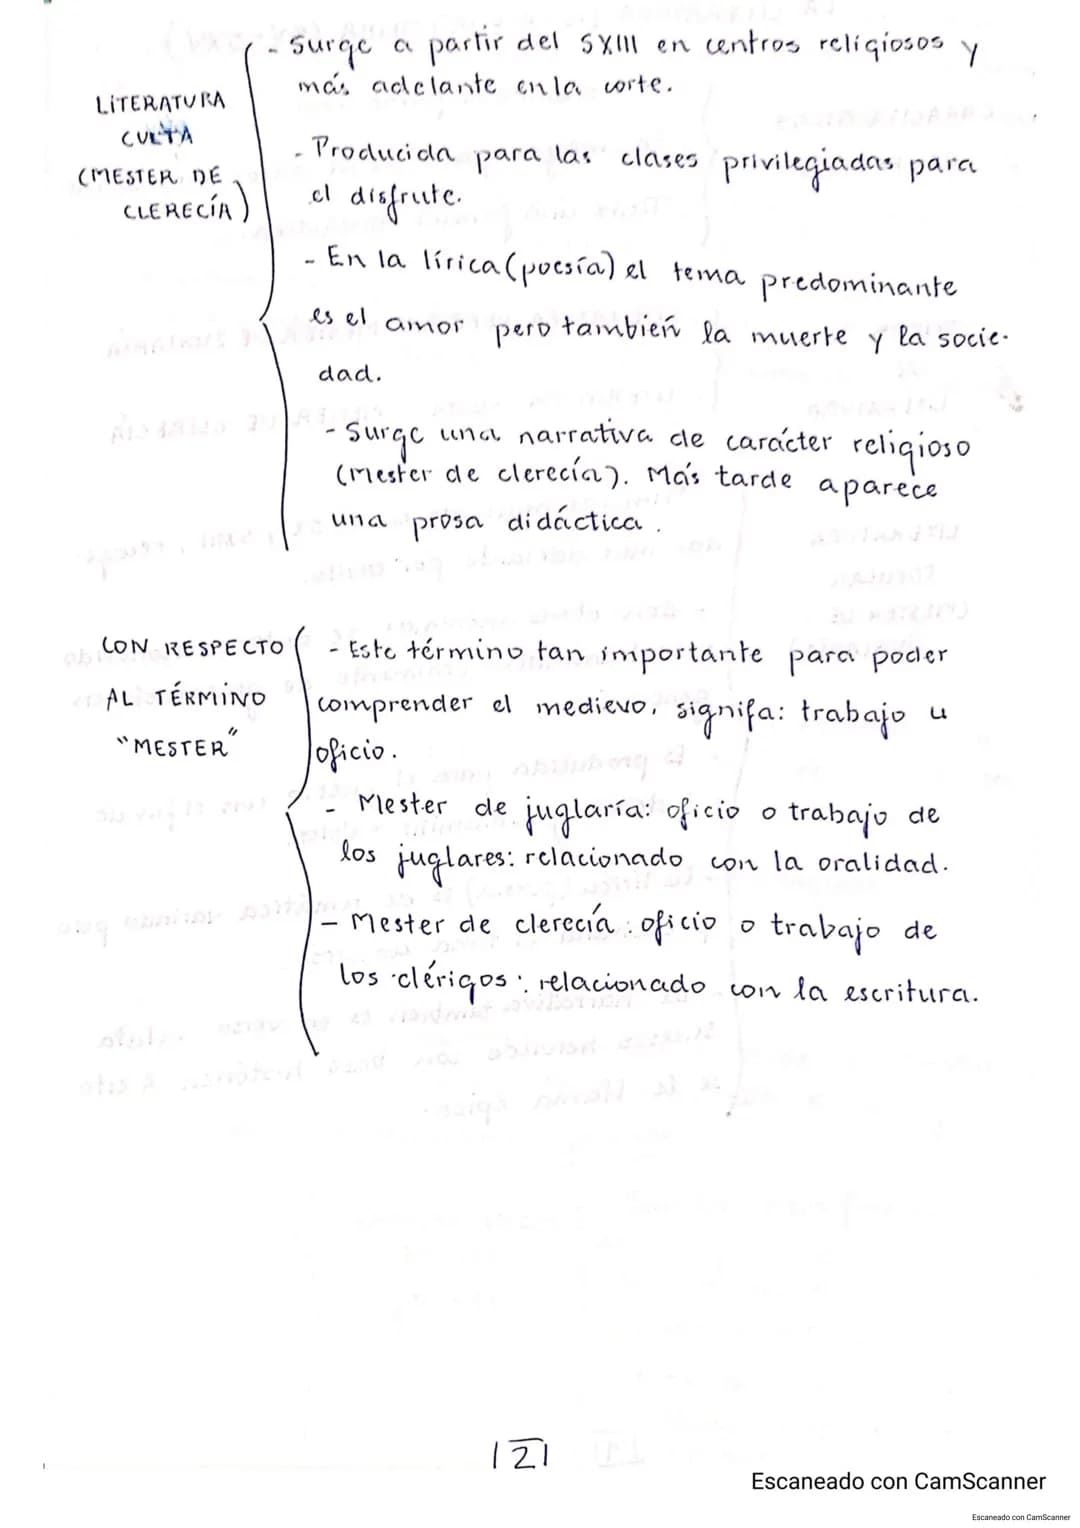 LITERATURA
CULTA
(MESTER DE
CLERECÍA)
- Surge a partir del SXIII en centros religiosos y
más adelante en la corte.
- Producida para las clases privilegiadas para
el disfrute.
- En la lírica (poesía) el tema predominante
es el amor pero también la muerte y la socie-
dad.
- Surge una narrativa de carácter religioso
(Mester de clerecía). Más tarde aparece
una prosa didáctica.
CON RESPECTO
AL TÉRMINO
"MESTER"
- Este término, tan importante para poder
comprender el medievo, signifa: trabajo u
oficio.
- Mester de juglaría: oficio o trabajo de
los juglares: relacionado con la oralidad.
- Mester de clerecía: oficio o trabajo de
los clérigos: relacionado con la escritura.
|2|
Escaneado con CamScanner
Escaneado con CamScanner